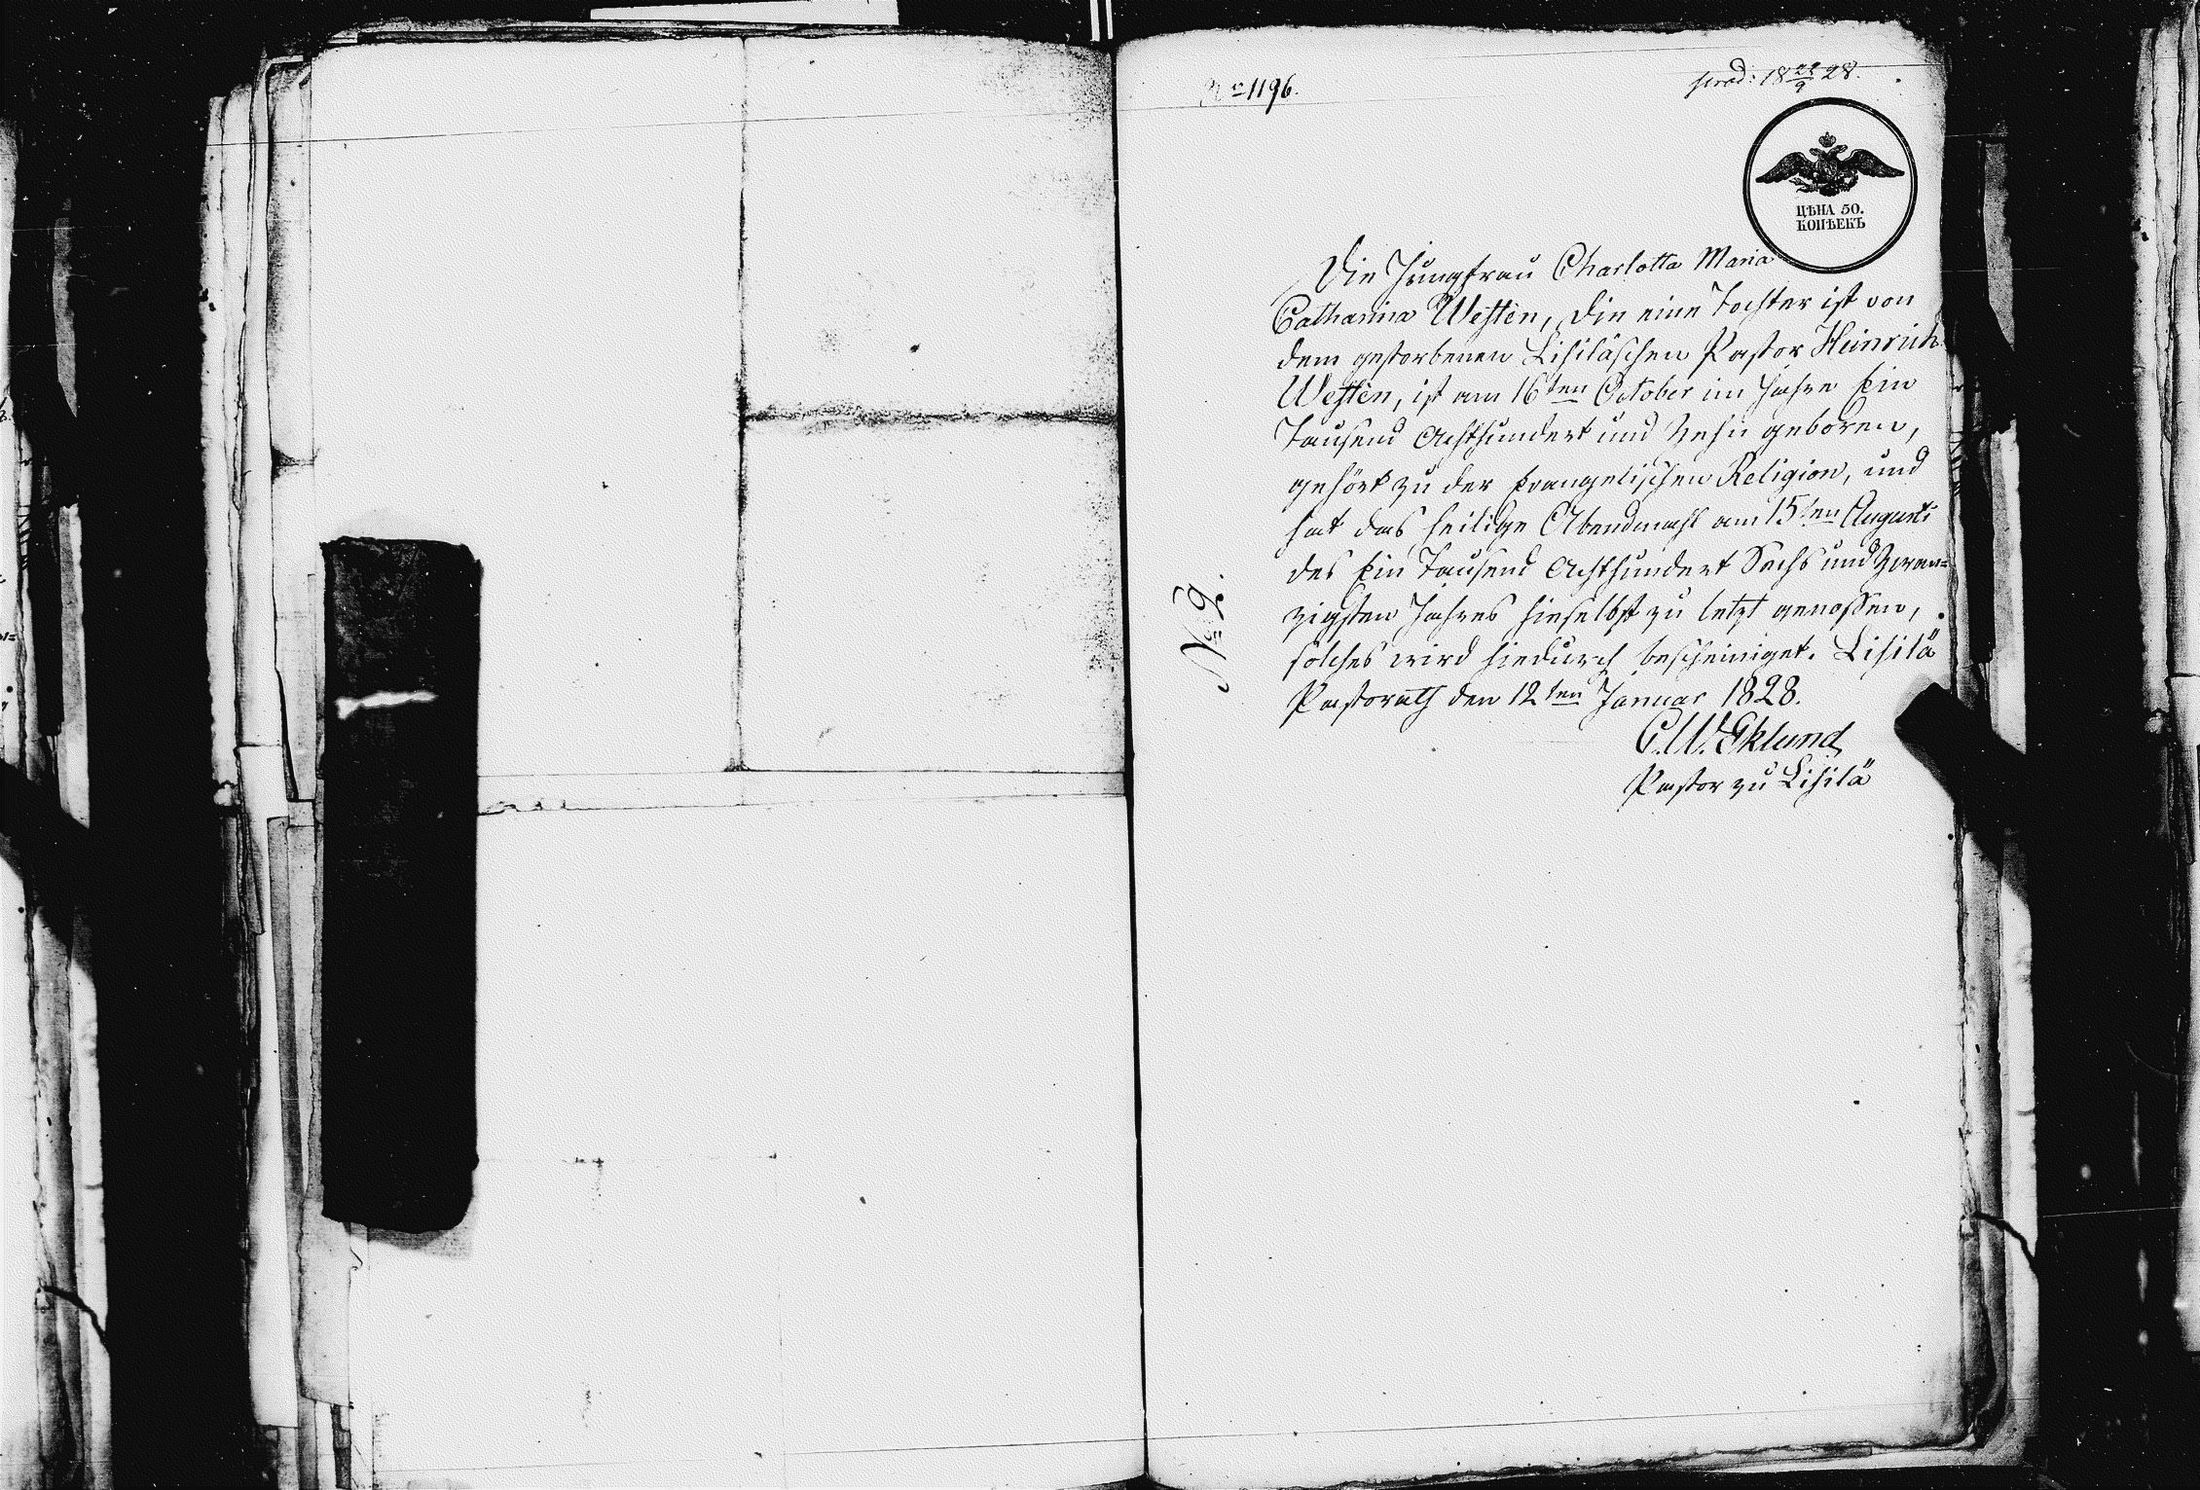 No 1196.
prod: 18 29/9 28.
ЦѢНА 50.
КОПѢЕКЪ
Die Jungfrau Charlotta Maria
Catharina Westèn, die eine Tochter ist von
dem gestorbenen Lisiläschen Pastor Heinrich
Westèn, ist am 16ten October im Jahre Ein
Tausend Achthundert und Zehn geboren,
gehört zu der Evangelischen Religion, und
hat das heilige Abendmahl am 15ten Augusti
des Ein Tausend Achthundert Sechs und Zwan=
zigsten Jahres hieselbst zu letzt genossen,
solches wird hiedurch bescheiniget. Lisilä
Pastorath den 12ten Januar 1828.
C.W. Eklund
Pastor zu Lisilä
No 9.